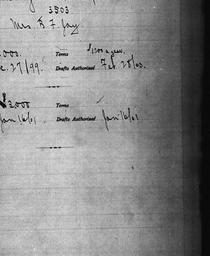 3503
Mrs. F. Jay
,000. Terms $1200 a year.
c. 27/99. Drafts Authorized Feb 28/03.
$3,000 Terms
Jan 16/01 Drafts Authorized Jan 16/01